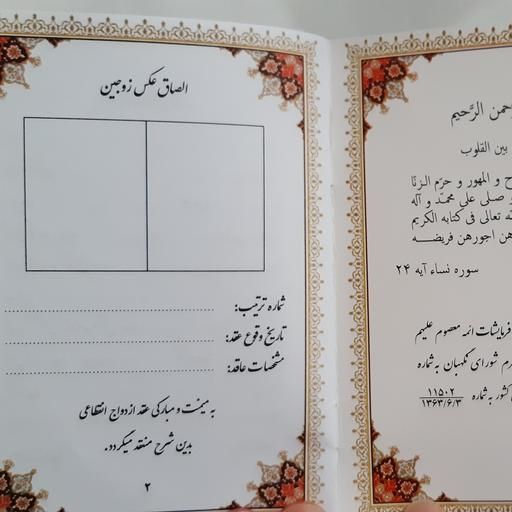 حمن الرَّحیم
بین القلوب
ح و المهور و حرّم الزنّا
و صلی علی محمّد و آله
ـه تعالی فی کتابه الکریم
ـهن اجورهن فریضـــه
سوره نساء آیه ۲۴
فرمایشات ائمه معصوم علیهم
رم شورای نگهبان به شماره
کشور به شماره ۱۱۵۰۲
۱۳۶۳/۶/۳
الصاق عکس زوجین
شماره ترتیب:
تاریخ وقوع عقد:
مشخصات عاقد:
به میمنت و مبارکی عقد ازدواج انقطاعی
بدین شرح منعقد میگردد.
۲